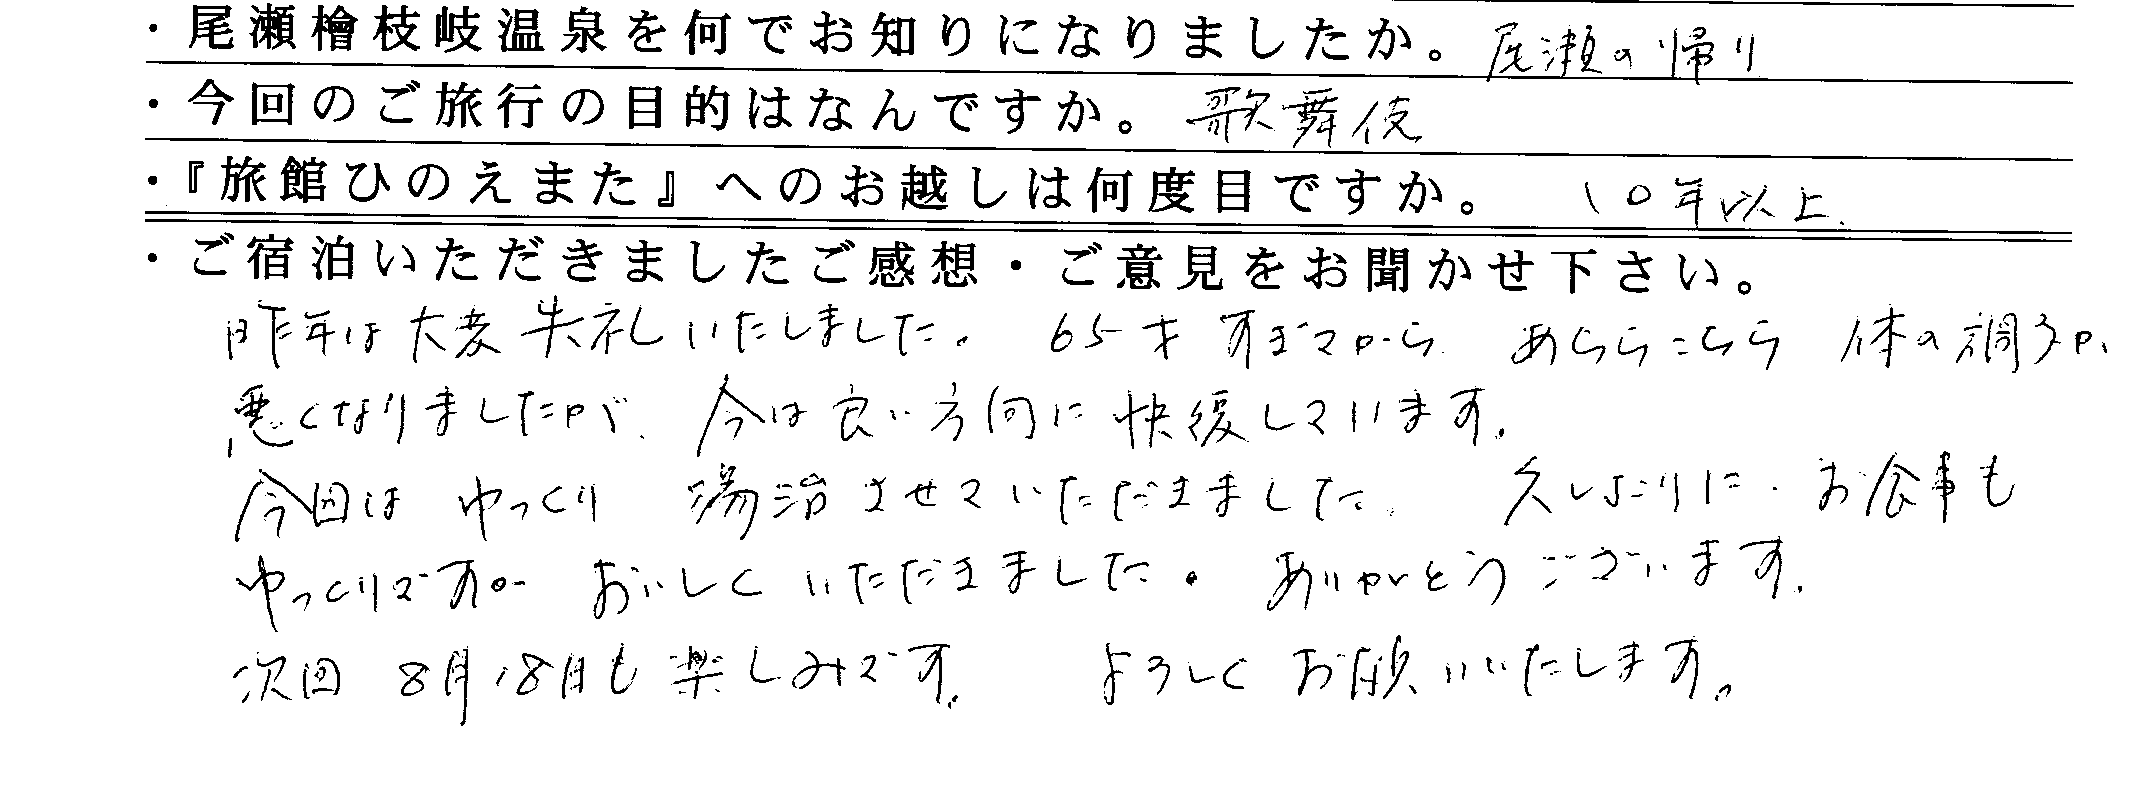 ・尾瀬檜枝岐温泉を何でお知りになりましたか。尾瀬の帰り
・今回のご旅行の目的はなんですか。歌舞伎
・『旅館ひのえまた』へのお越しは何度目ですか。10年以上.
・ご宿泊いただきましたご感想・ご意見をお聞かせ下さい。
昨年は大変失礼いたしました。65才すぎてから あちらこちら 体の調子が
悪くなりましたが、今は良い方向に快復しています。
今回は ゆっくり 湯治させていただきました。久しぶりに、お食事も
ゆっくりですが おいしくいただきました。ありがとうございます。
次回 8月18日も楽しみです。よろしくお願いいたします。